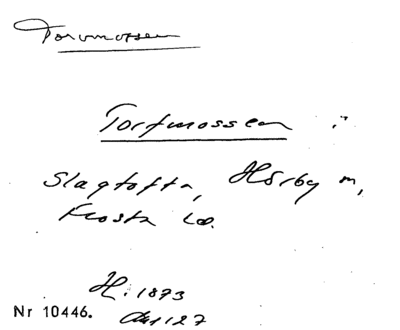 Torvmossen
Torfmossen i
Slagtofta, Hörby m,
Frosta
H. 1873
Nr 10446.